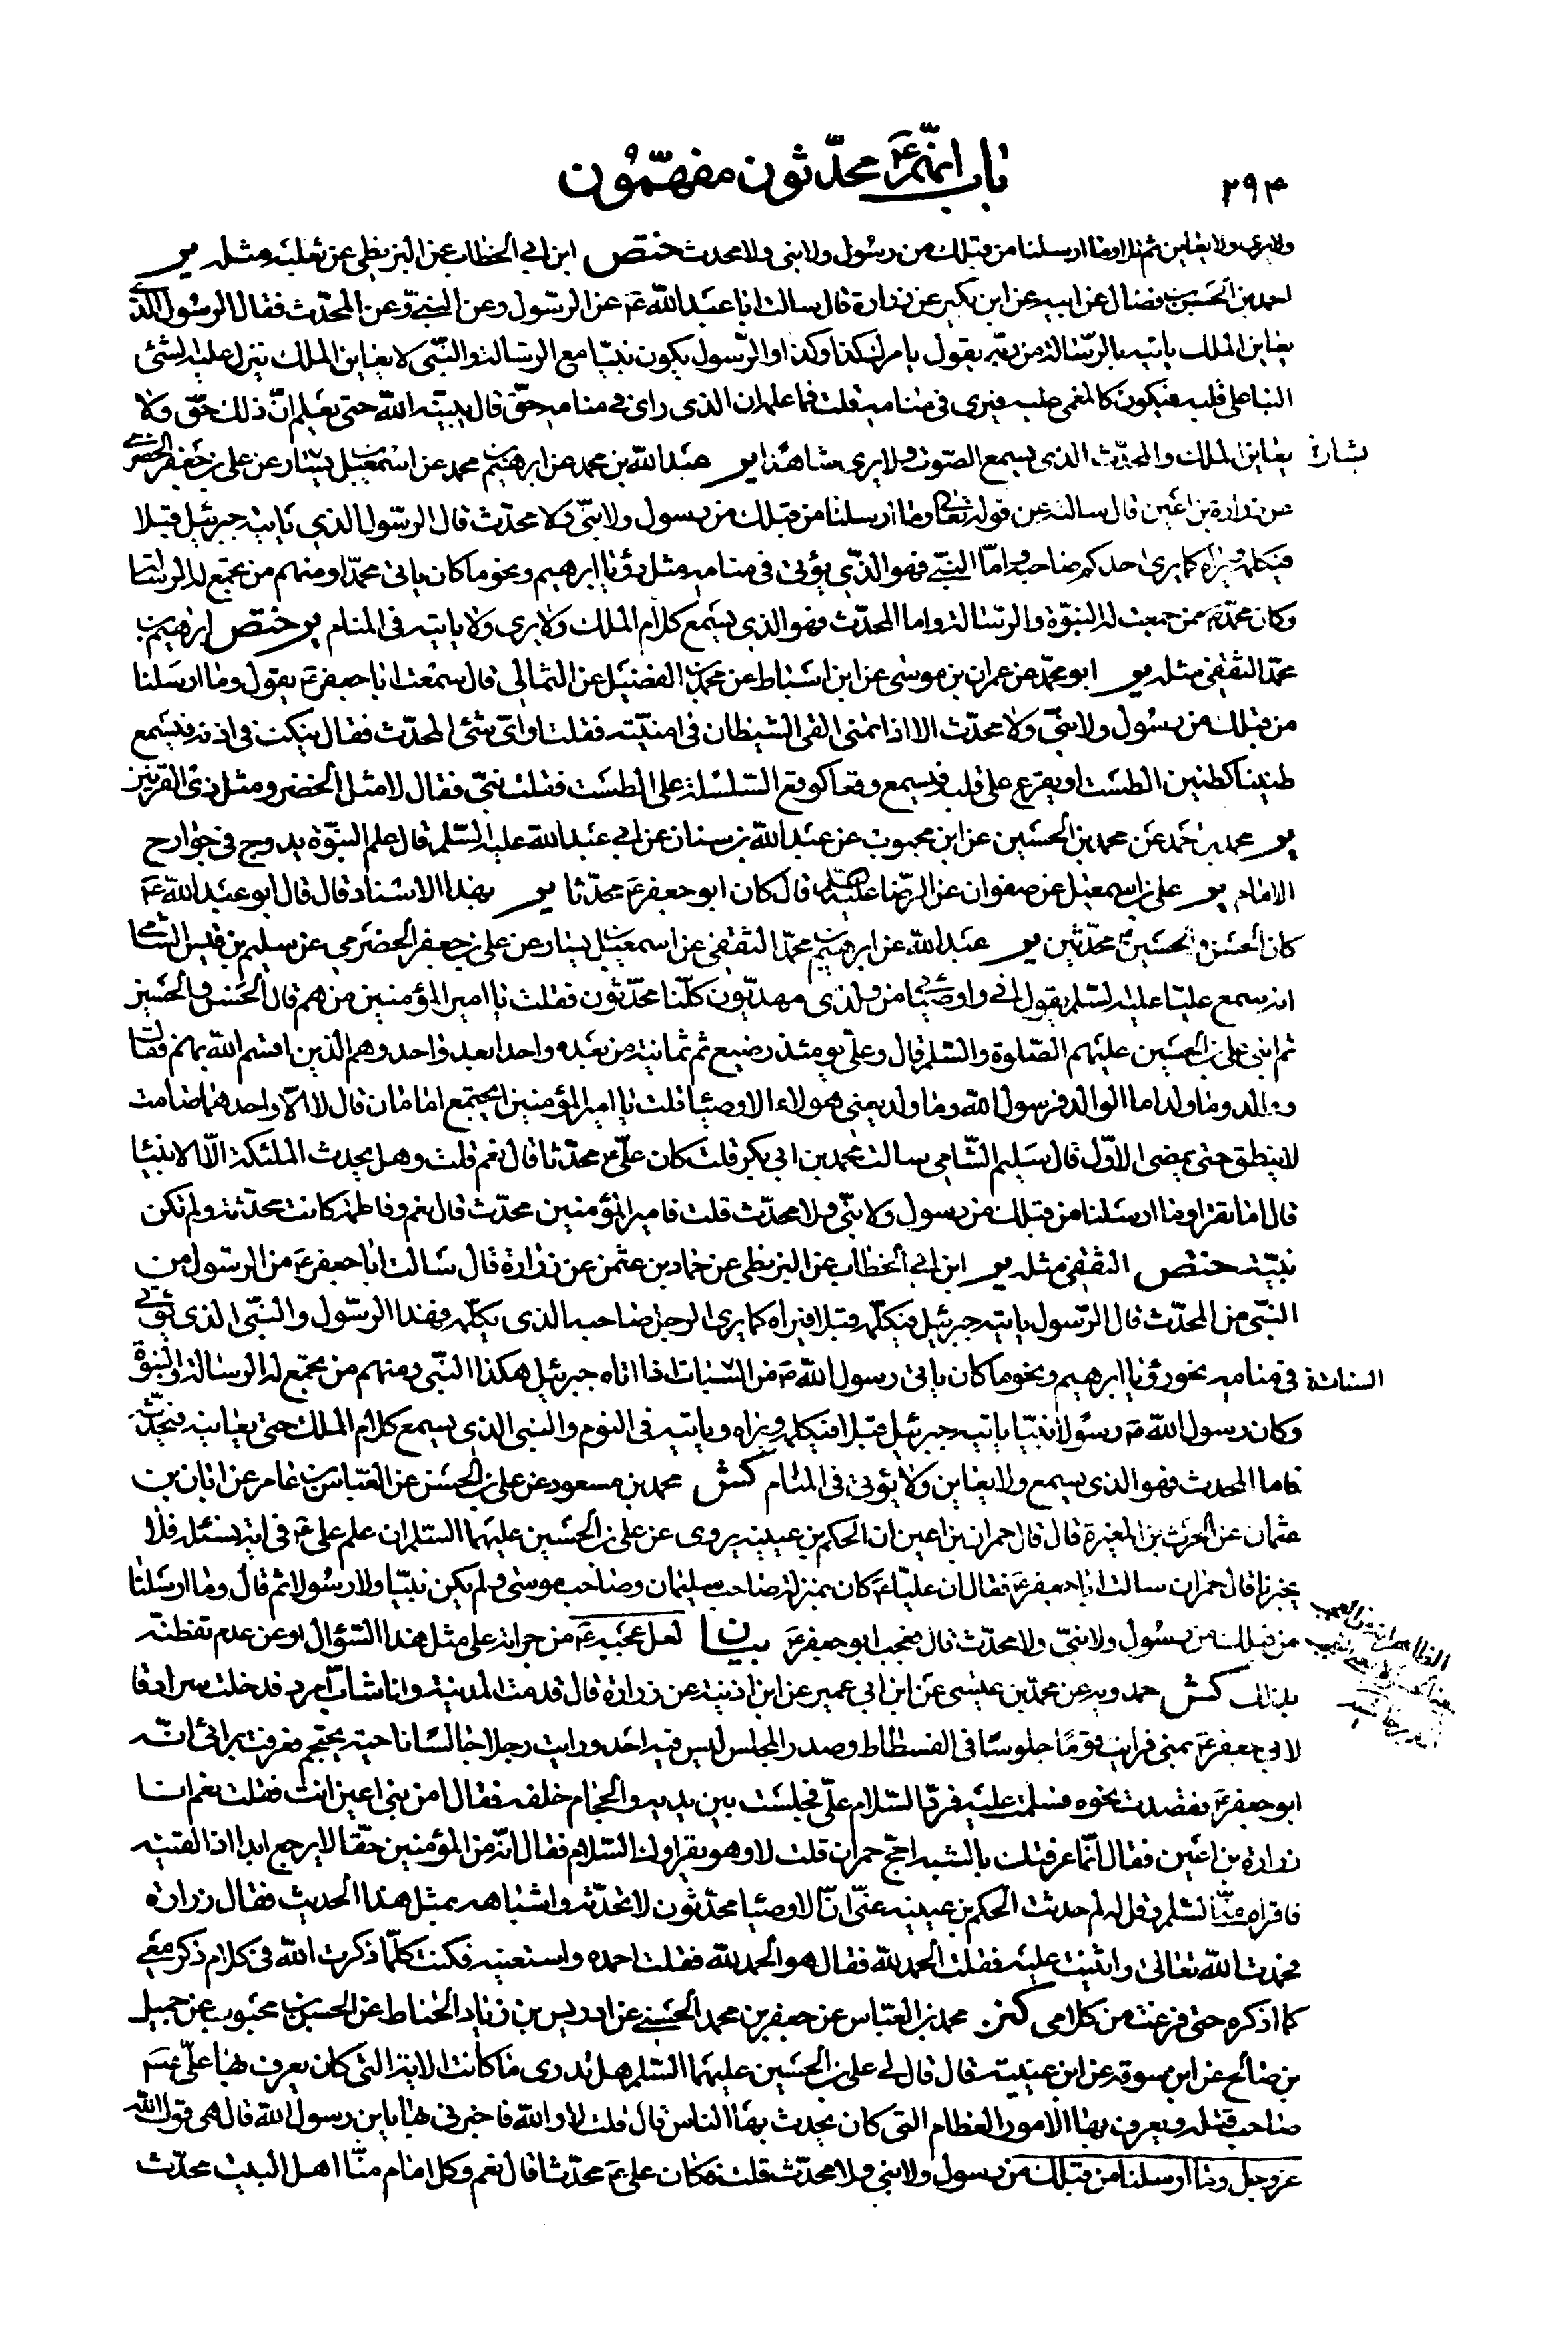 ٢٩٤
باب انّهم ع محدّثون مفهّمون
ولا يرى ولا يعاين ثم تلا وما ارسلنا من قبلك من رسول ولا نبى ولا محدث ختص ابن ابي الخطاب عن البزنطي عن ثعلبة مثله ير
احمد بن الحسن بن فضال عن ابيه عن ابن بكير عن زرارة قال سالت ابا عبد الله ع عن الرّسول وعن النبيّ وعن المحدّث فقال الرسول الذي
يعاين الملك ياتيه بالرّسالة من ربّه يقول يامرك كذا وكذا والرّسول يكون نبيّا مع الرسالة والنّبى لا يعاين الملك ينزل عليه لشئ
النبا على قلبه فيكون كالمغمى عليه فيرى في منامه قلت فما علمه ان الذى راى في منامه حقّ قال يبيّنه الله حتى يعلم انّ ذلك حقّ ولا
يعاين الملك والمحدّث الذى يسمع الصّوت ولا يرى شاهدا ير عبد الله بن محمد عن ابرهيم بن محمد عن اسمعيل بن يسار عن علي بن جعفر الحضرمي
بشار خ
عن زرارة بن اعين قال سالته عن قوله تعالى وما ارسلنا من قبلك من رسول ولا نبىّ ولا محدّث قال الرّسول الذي ياتيه جبرئيل قبلا
فيكلمه ويراه كما يرى احدكم صاحبه واما النبيّ فهو الذّي يؤتى في منامه مثل رؤيا ابرهيم ونحو ما كان ياتى محمّدا ومنهم من يجتمع له الرسالة
وكان محمّد ص ممن جمعت له النبوّة والرّسالة واما المحدّث فهو الذي يسمع كلام الملك ولا يرى ولا ياتيه في المنام ير ختص ابرهيم بن
محمّد الثقفى مثله ير ابو محمّد عن عمران بن موسى عن ابن اسباط عن محمّد بن الفضيل عن الثمالي قال سمعت ابا جعفر ع يقول وما ارسلنا
من قبلك من رسول ولا نبىّ ولا محدّث الا اذا تمنى القى الشيطان فى امنيّته فقلت واىّ شئ المحدّث فقال ينكت في اذنه فيسمع
طنينا كطنين الطست او يقرع على قلبه فيسمع وقعا كوقع السّلسلة على الطست فقلت نبىّ فقال لا مثل الخضر ومثل ذى القرنين
ير محمد بن احمد عن محمد بن الحسين عن ابن محبوب عن عبد الله بن سنان عن ابي عبد الله عليه السّلم قال علم النبوّة يدرج فى جوارح
الامام ير على بن اسمعيل عن صفوان عن الرّضا عليه السلام قال كان ابو جعفر ع محدّثا ير بهذا الاسناد قال قال ابو عبد الله ع
كان الحسن والحسين ع محدّثين ير عبد الله عن ابرهيم بن محمّد الثقفى عن اسمعيل بن يسار عن على بن جعفر الحضرمي عن سليم بن قيس الشامي
انه سمع عليّا عليه السّلم يقول انّي واوصيائى من ولدى مهديّون كلّنا محدّثون فقلت يا امير المؤمنين من هم قال الحسن والحسين
ثم ابنى على بن الحسين عليهم الصّلوة والسّلم قال وعلى يومئذ رضيع ثم ثمانية من بعده واحدا بعد واحد وهم الذين اقسم الله بهم فقال
ووالد وما ولد اما الوالد فرسول الله وما ولد يعنى هؤلاء الاوصيا قلت يا امير المؤمنين ايجتمع امامان قال لا الّا واحدهما صامت
لا ينطق حتى يمضى الاوّل قال سليم الشّامي سالت محمد بن ابي بكر قلت كان علىّ ع محدّثا قال نعم قلت وهل يحدث الملئكة الّا الانبيا
قال اما تقرا وما ارسلنا من قبلك من رسول ولا نبىّ ولا محدّث قلت فامير المؤمنين محدّث قال نعم وفاطمة كانت محدّثة ولم تكن
نبيّة ختص الثقفى مثله ير ابن ابي الخطاب عن البزنطي عن حماد بن عثمن عن زرارة قال سالت ابا جعفر ع من الرّسول من
النّبى من المحدّث قال الرّسول ياتيه جبرئيل فيكلّمه قبلا فيراه كما يرى الرجل صاحبه الذى يكلّمه فهذا الرّسول والنبّى الذى يؤتى
فى منامه نحو رؤيا ابرهيم ونحو ما كان ياتى رسول الله ص من السّبات اذا اتاه جبرئيل هكذا النّبى ومنهم من يجتمع له الرسالة والنبوة
وكان رسول الله ص رسولا نبيّا ياتيه جبرئيل قبلا فيكلمه ويراه وياتيه فى النوم والنبى الذى يسمع كلام الملك حتى يعاينه فيحدّثه
فاما المحدث فهو الذى يسمع ولا يعاين ولا يؤتى فى المنام كش محمد بن مسعود عن على بن الحسن عن العباس بن عامر عن ابان بن
عثمان عن الحرث بن المغيرة قال قال حمران بن اعين ان الحكم بن عيينه يروى عن على بن الحسين عليهما السّلم ان علم على ع فى اية نسئله فلا
يخبرنا قال حمران سالت ابا جعفر ع فقال ان عليّا ع كان بمنزلة صاحب سليمان وصاحب موسى ولم يكن نبيّا ولا رسولا ثم قال وما ارسلنا
من قبلك من رسول ولا نبىّ ولا محدّث قال فعجب ابو جعفر ع بيان لعل عجبه ع من جراته على مثل هذا السّؤال او عن عدم تفطنه
بذلك كش حمدويه عن محمّد بن عيسى عن ابن ابي عمير عن ابن اذينة عن زرارة قال قدمت المدينة وانا شابّ امرد فدخلت سرادقا
لابي جعفر ع بمنى فرايت قومًا جلوسًا فى الفسطاط وصدر المجلس ليس فيه احد ورايت رجلا جالسا ناحية يحتجم فعرفت برائى انّه
ابو جعفر ع فقصدت نحوه فسلمت عليه فردّ السّلام علىّ فجلست بين يديه والحجّام خلفه فقال امن بنى اعين انت فقلت نعم انا
زرارة بن اعين فقال انّما عرفتك بالشبه احجّ حمران قلت لا وهو يقراك السّلام فقال انّه من المؤمنين حقّا لا يرجع ابدا اذا لقيته
فاقراه منّا السّلم وقل له لم حدثت الحكم بن عيينه عنّى انّ الاوصيا محدّثون لا تحدّثه واشباهه بمثل هذا الحديث فقال زرارة
فحمدت الله تعالى واثنيت عليه فقلت الحمد لله فقال هو الحمد لله فقلت احمده واستعينه فكنت كلّما ذكرت الله فى كلام ذكر معى
كما اذكره حتى فرغت من كلامى كنز محمد بن العبّاس عن جعفر بن محمد الحسنى عن ادريس بن زياد الحناط عن الحسن بن محبوب عن جميل
بن صالح عن ابن سوقه عن ابن عيينه قال قال لى على بن الحسين عليهما السّلم هل تدرى ما كانت الاية التى كان يعرف بها علىّ ع
صاحب قتله ويعرف بها الامور العظام التى كان يحدث بها الناس قال قلت لا والله فاخبرنى بها يابن رسول الله قال هى قول الله
عز وجل وما ارسلنا من قبلك من رسول ولا نبى ولا محدّث قلت فكان على ع محدّثا قال نعم وكل امام منّا اهل البيت محدّث